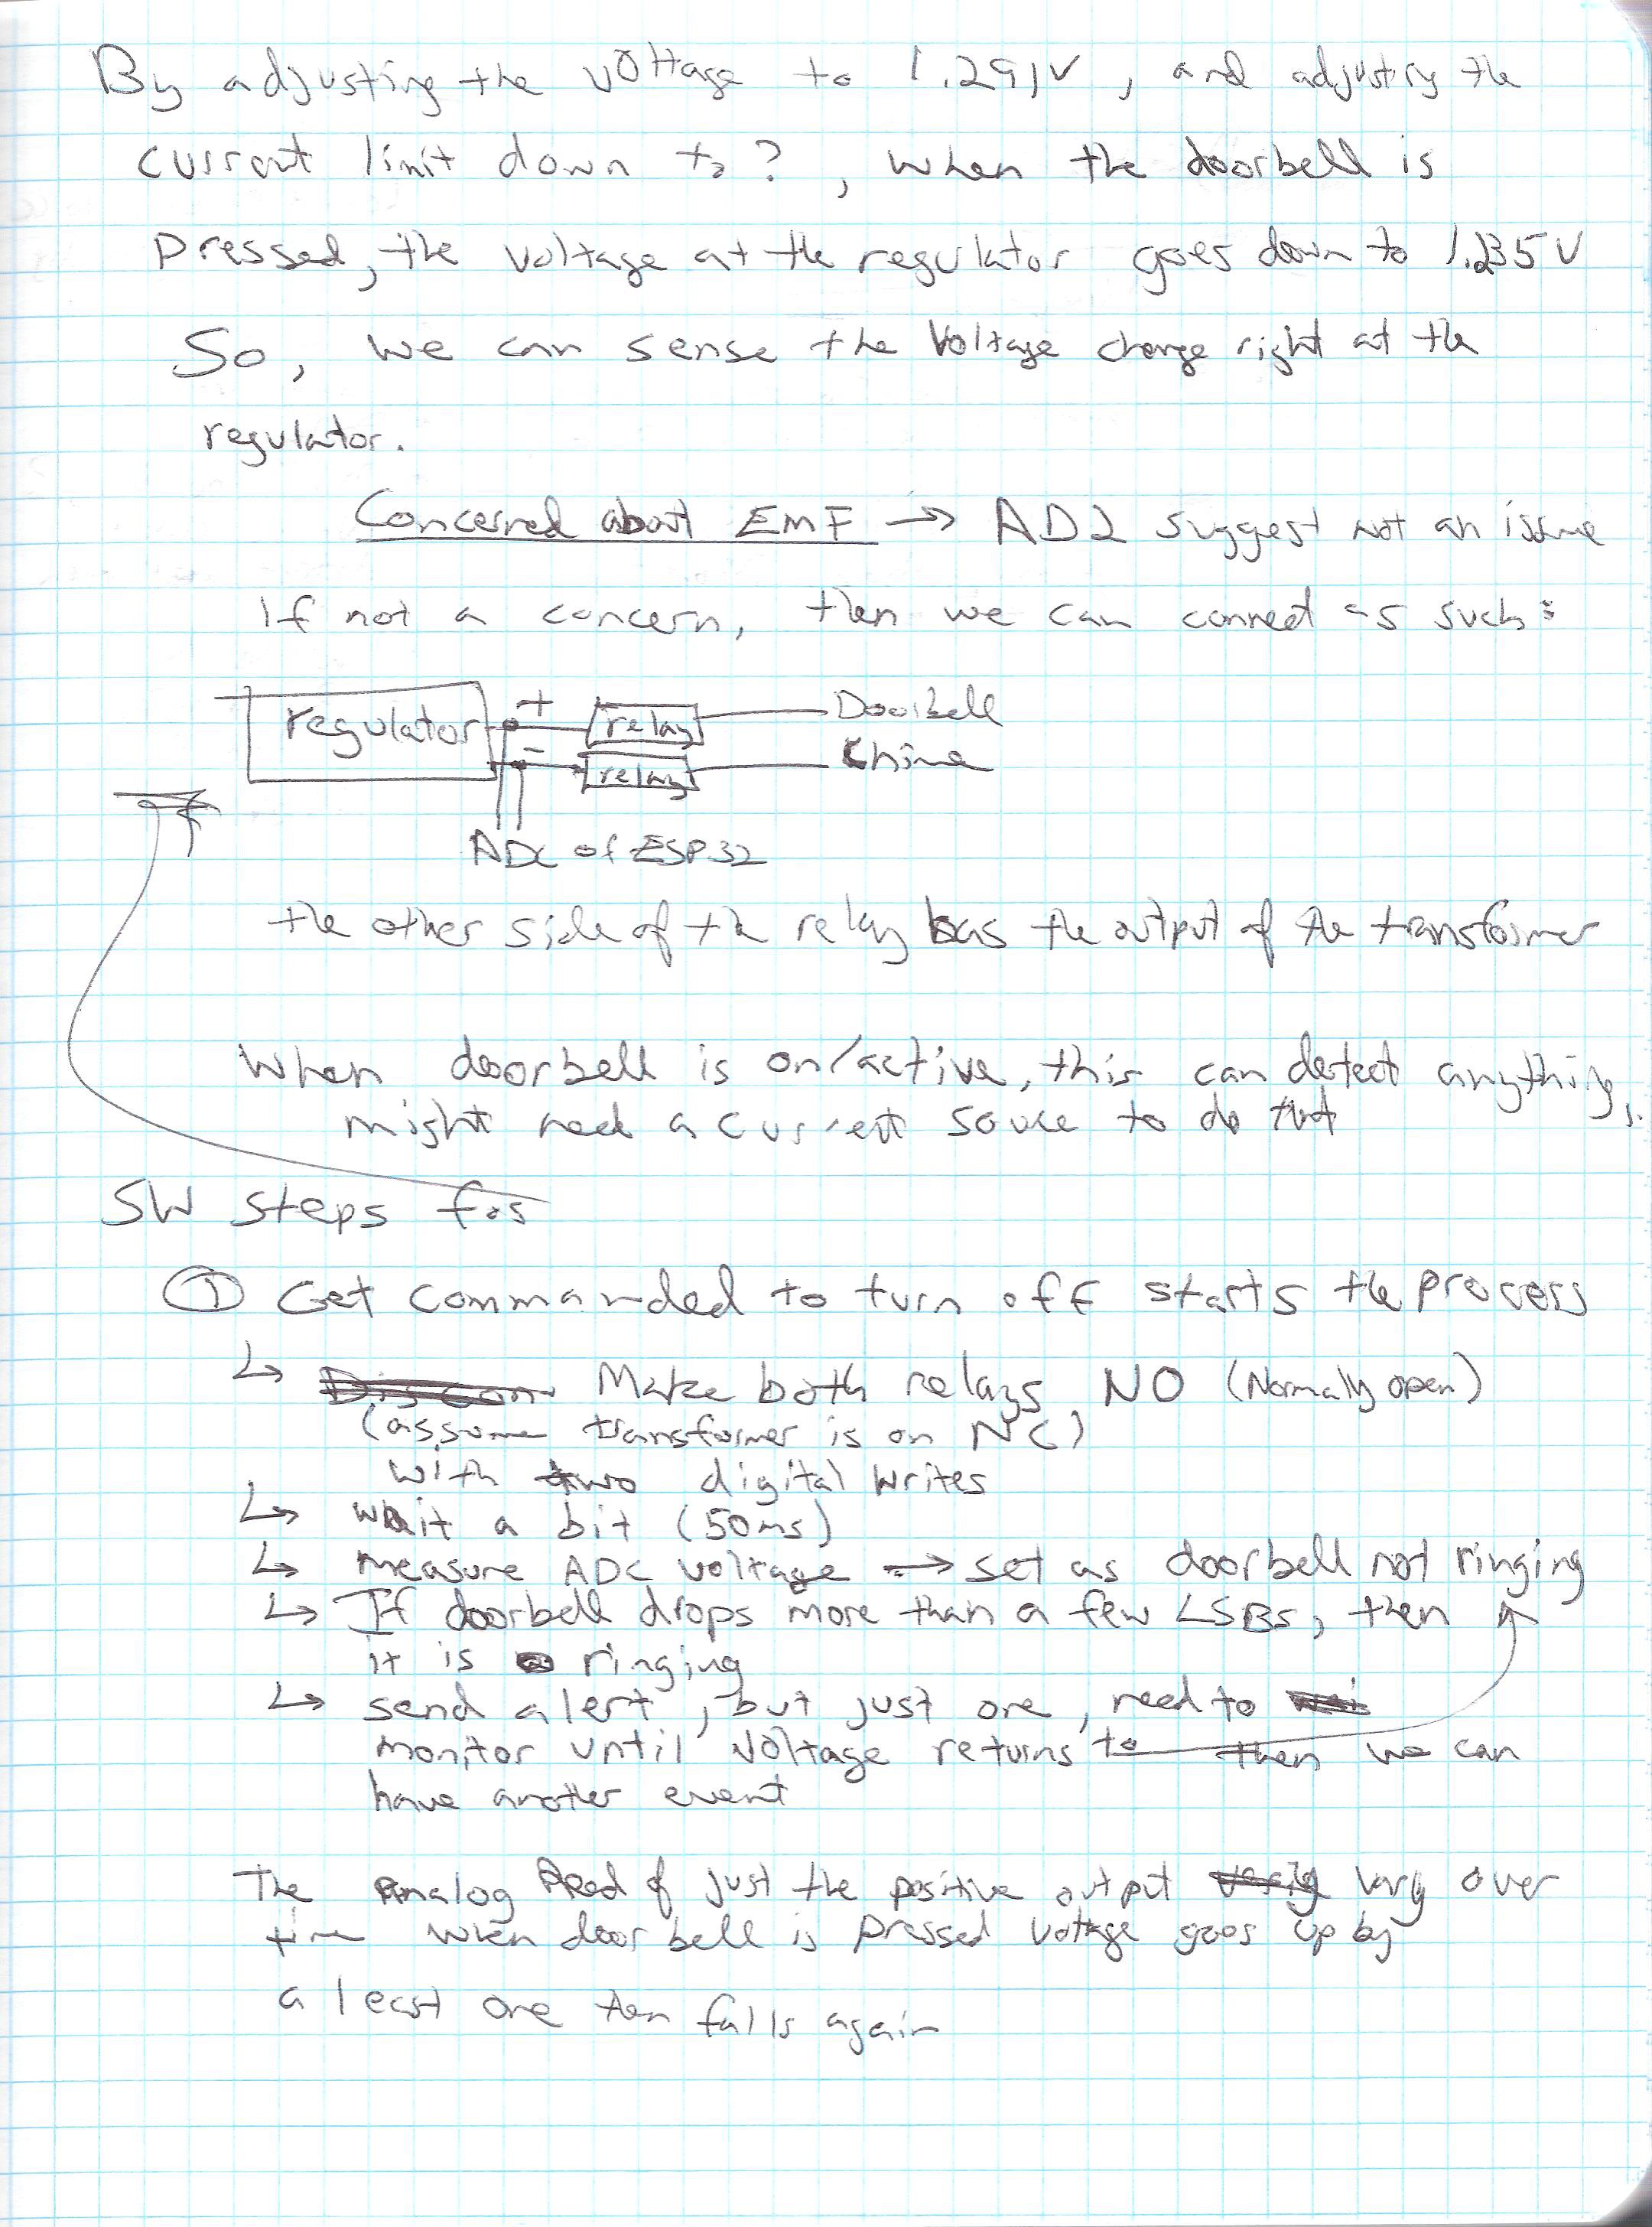 By adjusting the voltage to 1.291V, and adjusting the
current limit down to?, when the doorbell is
pressed, the voltage at the regulator goes down to 1.235V
So, we can sense the voltage change right at the
regulator.
Concerned about EMF → AD2 suggest not an issue
If not a concern, then we can connect as such:
regulator + relay Doorbell
- relay Chime
ADC of ESP32
the other side of the relay has the output of the transformer
When doorbell is on/active, this can detect anything,
might need a current source to do that
SW steps for
① Get commanded to turn off starts the process
↳ Make both relays NO (Normally open)
(assume transformer is on NC)
with two digital writes
↳ wait a bit (50ms)
↳ measure ADC voltage → set as doorbell not ringing
↳ If doorbell drops more than a few LSBs, then
it is ringing
↳ send alert, but just one, need to
monitor until voltage returns to then we can
have another event
The Analog Read of just the positive output vary over
time when door bell is pressed voltage goes up by
a least one then falls again